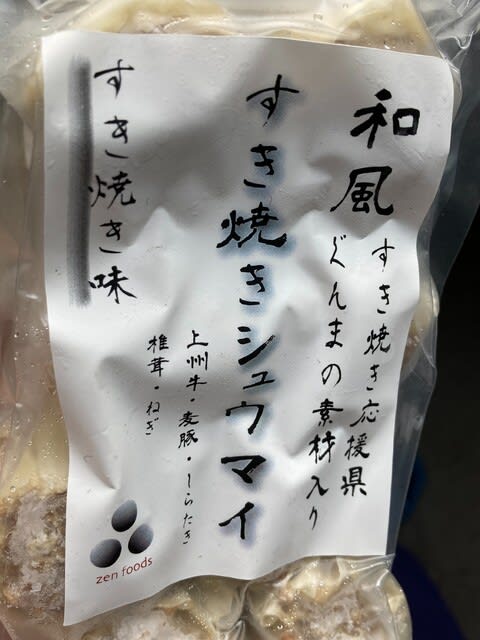 和風
すき焼き応援県
ぐんまの素材入り
すき焼きシュウマイ
上州牛・麦豚・しらたき
椎茸・ねぎ
すき焼き味
zen foods